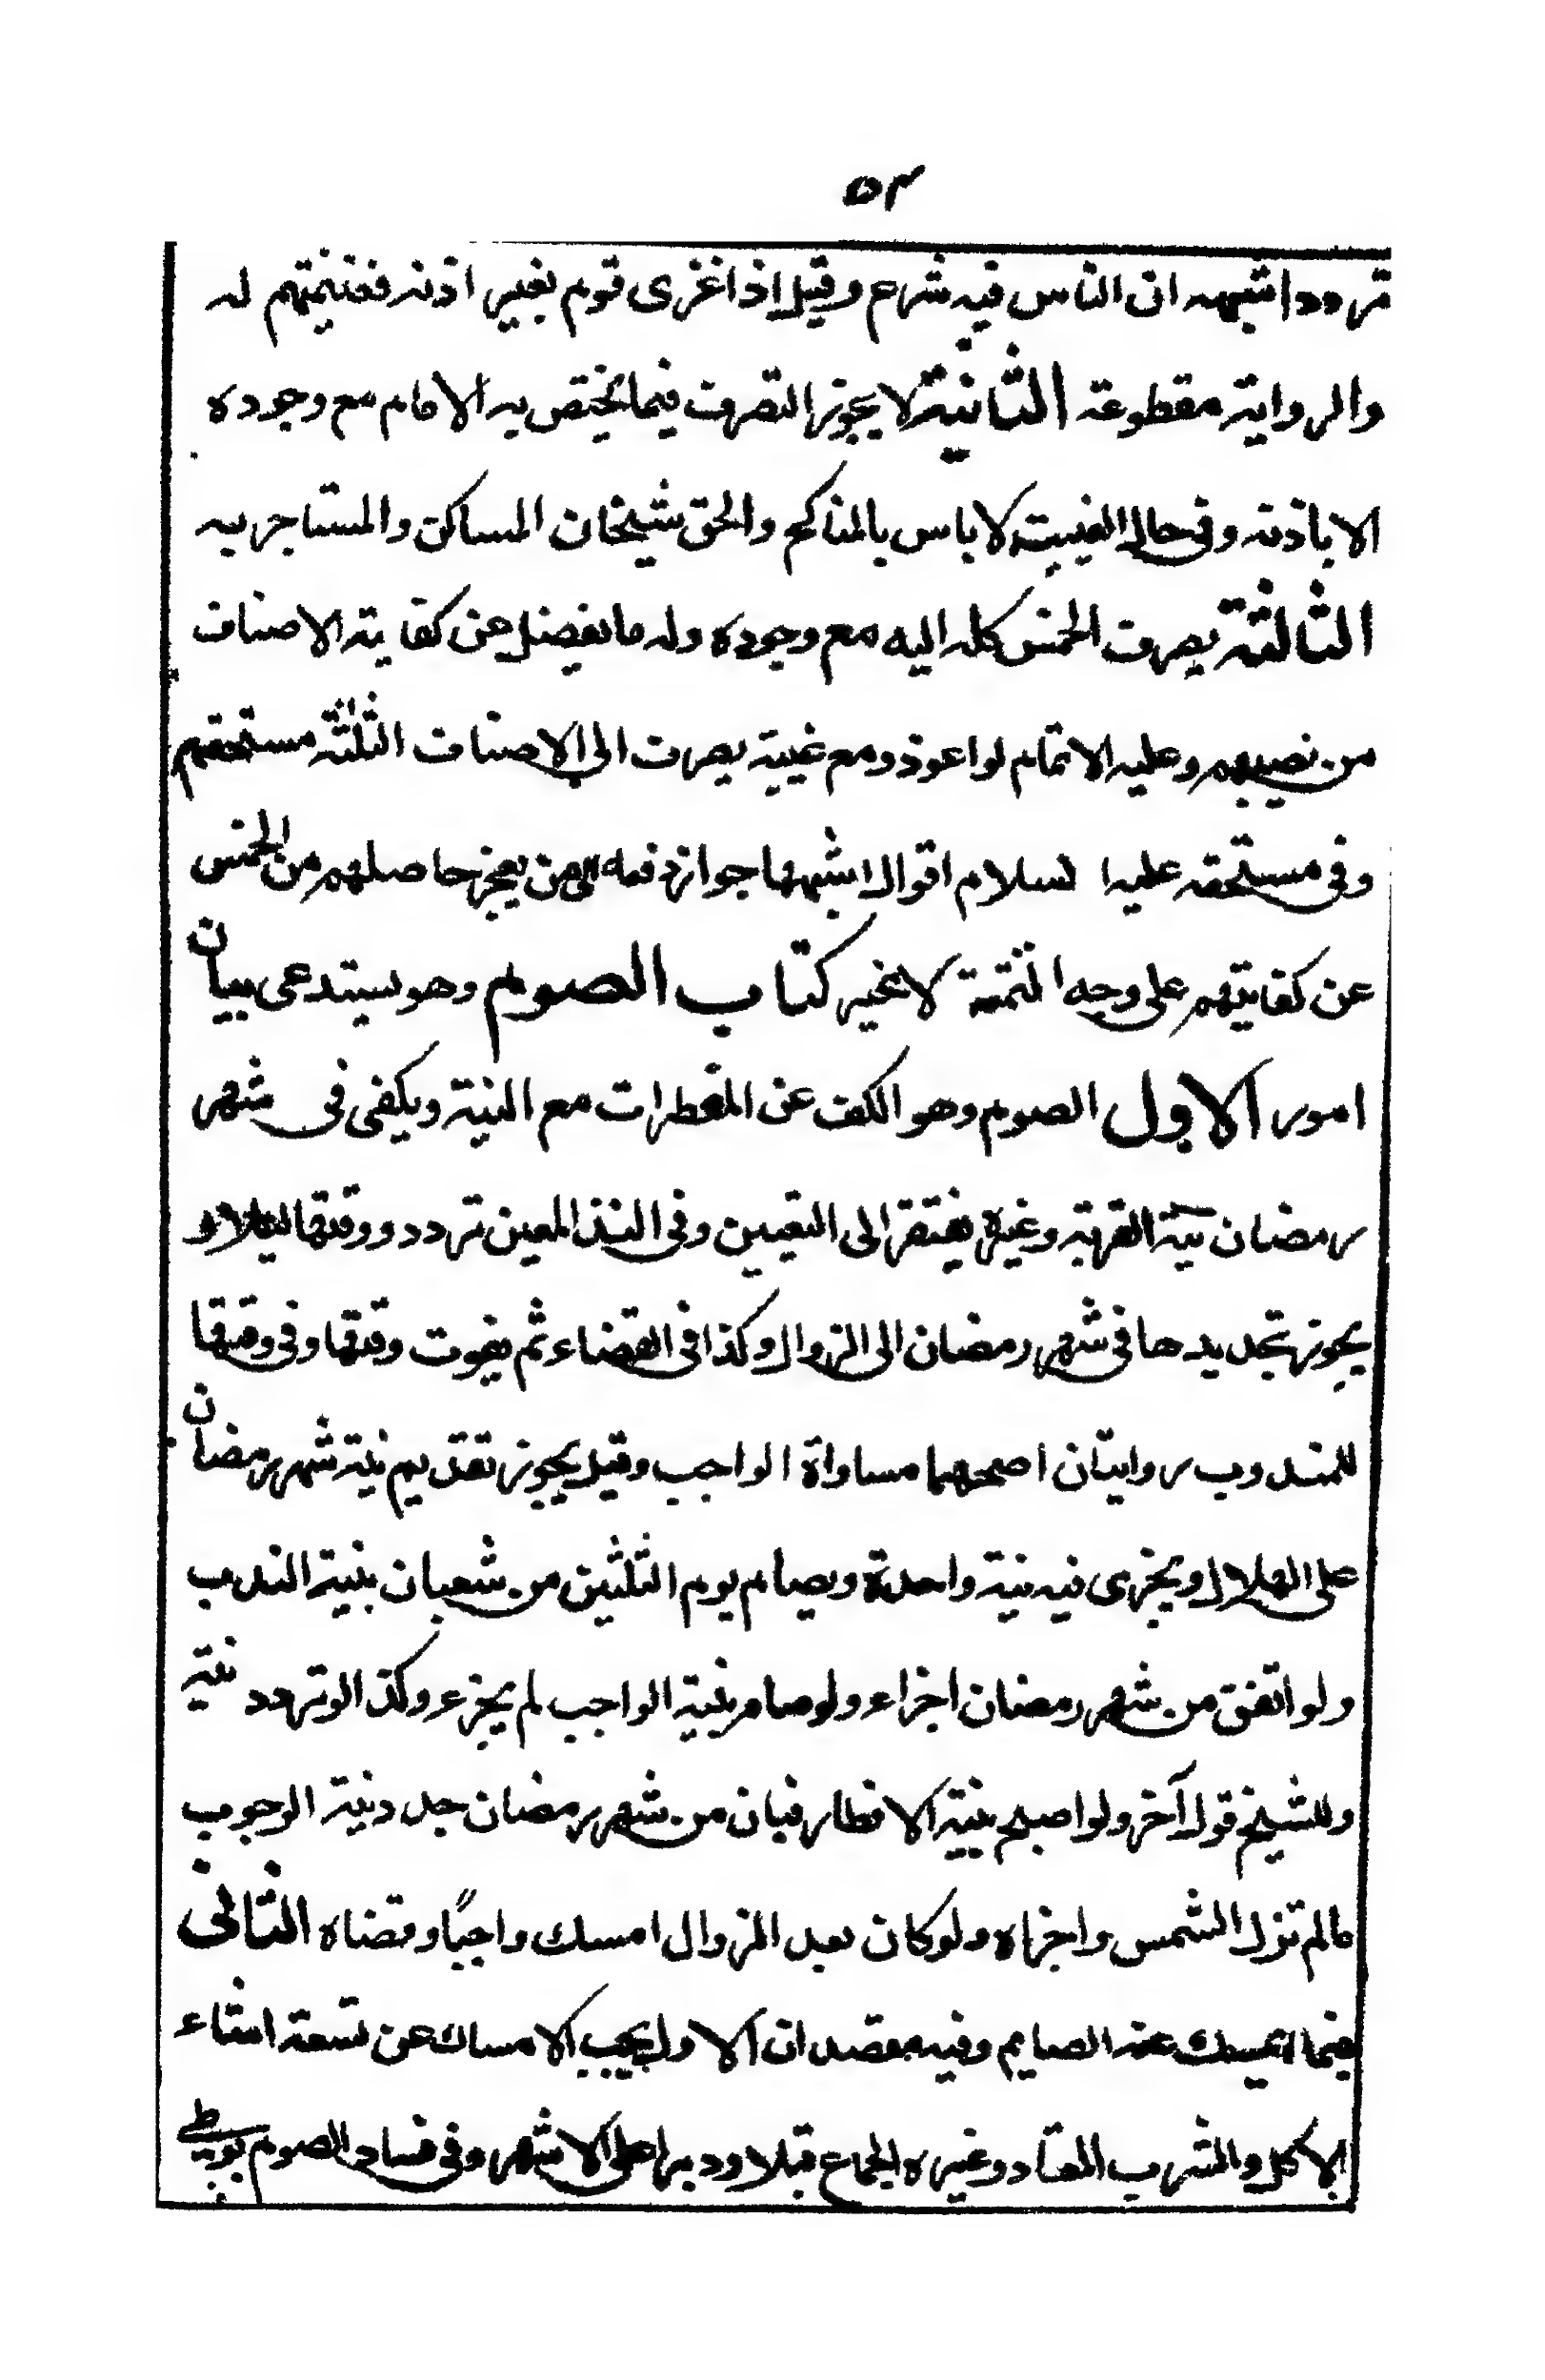 ٥٣
تردد اشبهه ان الناس فيه شرع وقيل اذا غزى قوم بغير اذنه فغنيمتهم له
والرواية مقطوعة الثانية لا يجوز التصرف فيما يختص به الامام مع وجوده
الا باذنه وفى حال الغيبة لا باس بالمناكح والحق شيخان المساكن والمتاجر به
الثالثة يصرف الخمس كله اليه مع وجوده وله ما يفضل عن كفاية الاصناف
من نصيبهم وعليه الاتمام لو اعوز ومع غيبة يصرف الى الاصناف الثلثة مستحقهم
وفى مستحقه عليه السلام اقوال اشبهها جواز دفعه الى من يعجز حاصلهم من الخمس
عن كفايتهم على وجه التتمة لا غير كتاب الصوم وهو يستدعى بيان
امور الاول الصوم وهو الكف عن المفطرات مع النية ويكفى فى شهر
رمضان نية القربة وغيره يفتقر الى التعيين وفى النذر المعين تردد ووقتها ليلا و
يجوز تجديدها فى شهر رمضان الى الزوال وكذا فى القضاء ثم يفوت وقتها وفى وقتها
للمندوب روايتان اصحهما مساواة الواجب وقيل يجوز تقديم نية شهر رمضان
على الهلال ويجزى فيه نية واحدة ويصام يوم الثلثين من شعبان بنية الندب
ولو اتفق من شهر رمضان اجزاء ولو صام بنية الواجب لم يجزء وكذا لو تردد نيته
وللشيخ قول آخر ولو اصبح بنية الافطار فبان من شهر رمضان جدد نية الوجوب
مالم تزل الشمس واجزاه ولو كان بعد الزوال امسك واجبًا وقضاه الثانى
فيما يمسك عنه الصايم وفيه مقصدان الاول يجب الامساك عن تسعة اشياء
الاكل والشرب المعتاد وغيره الجماع قبلا ودبرا على الاشهر وفى فساد الصوم بوطى